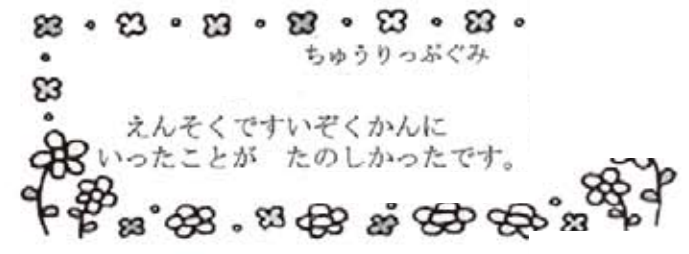 ちゅうりっぷぐみ
えんそくですいぞくかんに
いったことが　たのしかったです。